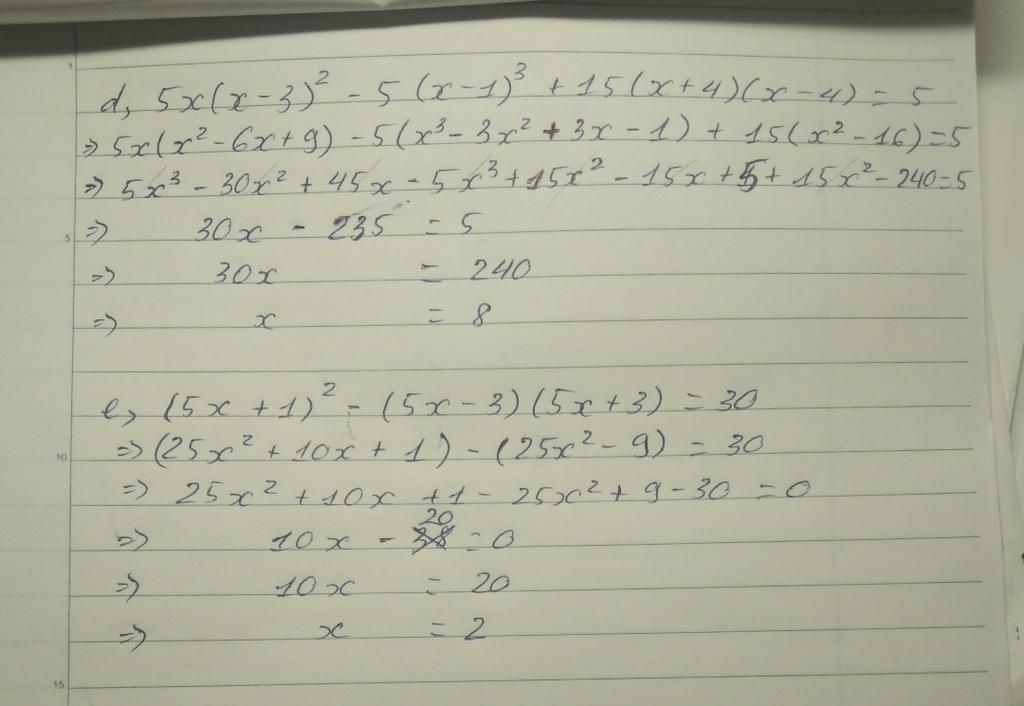 1
d, 5x(x-3)² - 5(x-1)³ + 15(x+4)(x-4) = 5
=> 5x(x² - 6x + 9) - 5(x³ - 3x² + 3x - 1) + 15(x² - 16) = 5
=> 5x³ - 30x² + 45x - 5x³ + 15x² - 15x + 5 + 15x² - 240 = 5
5 => 30x - 235 = 5
=> 30x = 240
=> x = 8
e, (5x + 1)² - (5x - 3)(5x + 3) = 30
10 => (25x² + 10x + 1) - (25x² - 9) = 30
=> 25x² + 10x + 1 - 25x² + 9 - 30 = 0
=> 10x - 20 = 0
=> 10x = 20
=> x = 2
15